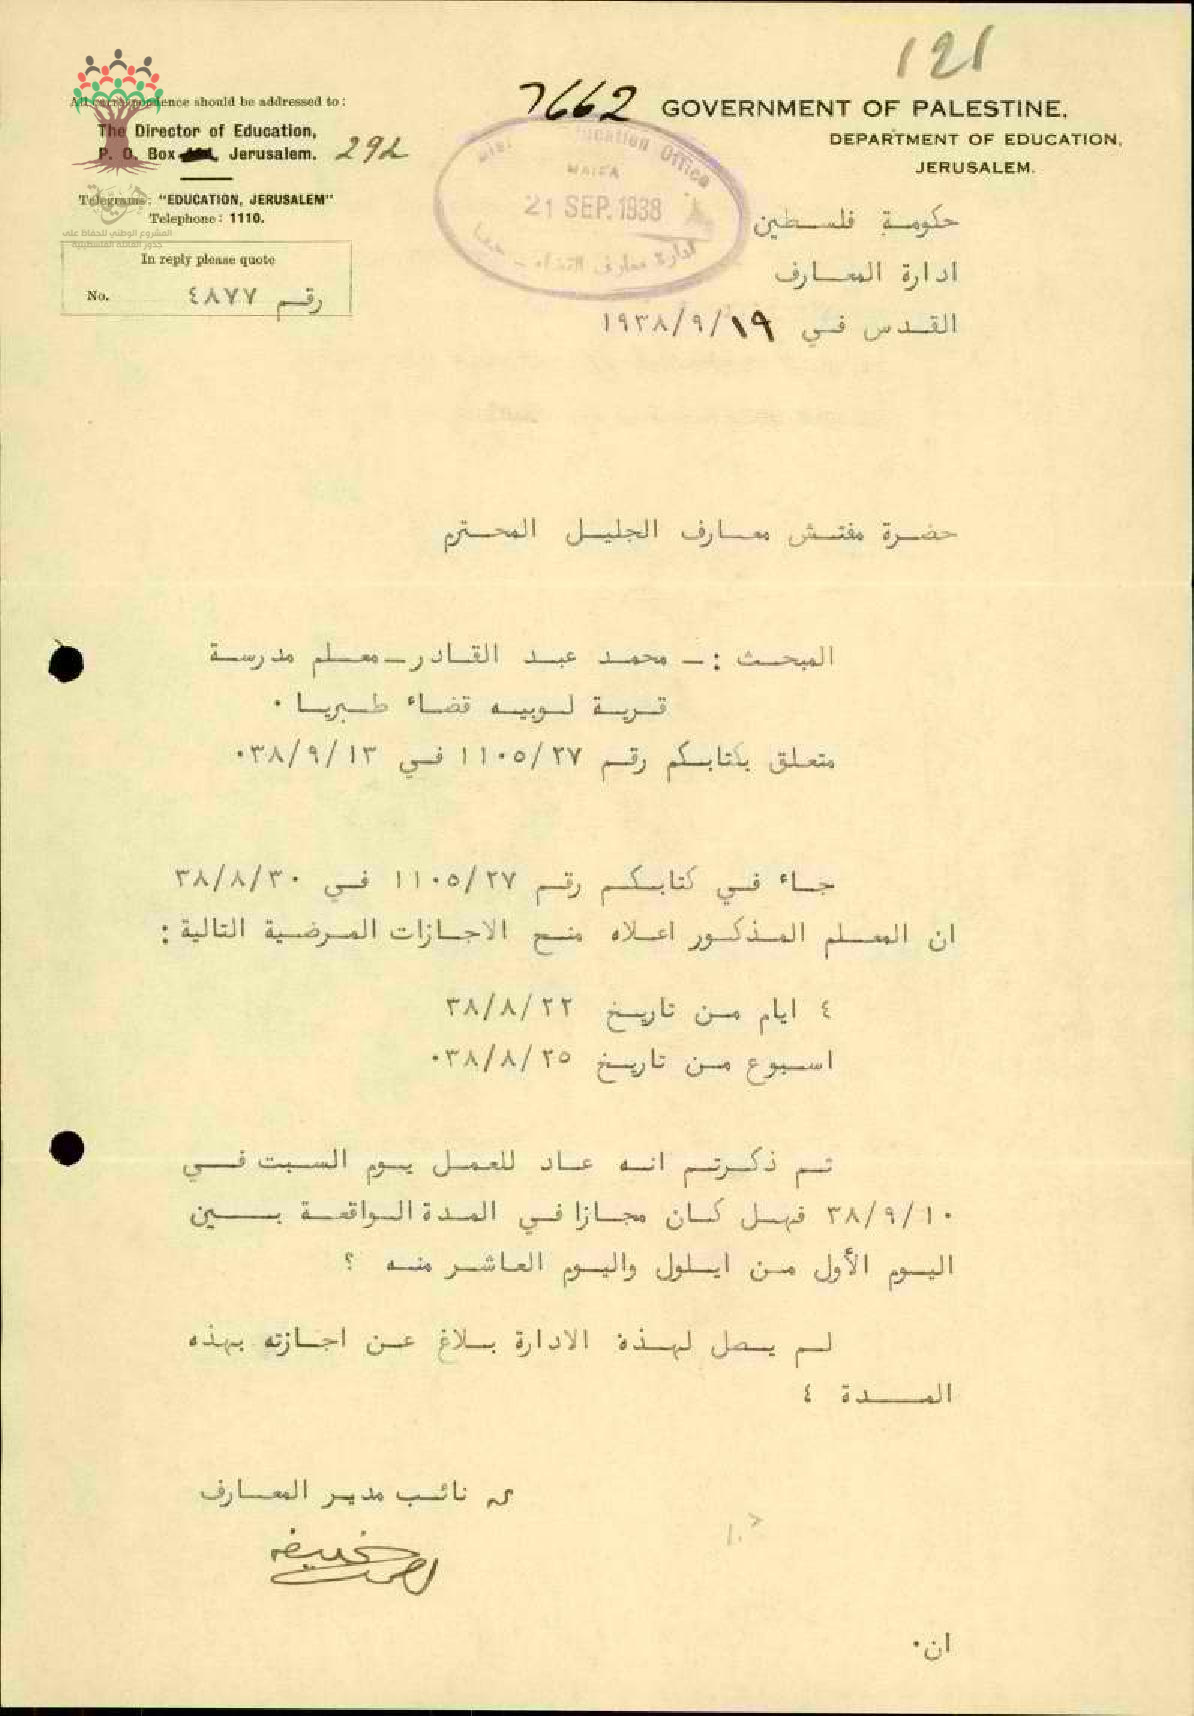 121
7662
All correspondence should be addressed to:
The Director of Education,
P. O. Box Jerusalem. 292
Telegrams: "EDUCATION, JERUSALEM"
Telephone: 1110.
In reply please quote
No. رقم ٤٨٧٧
GOVERNMENT OF PALESTINE.
DEPARTMENT OF EDUCATION,
JERUSALEM.
Education Office
HAIFA
21 SEP. 1938
هوية
المشروع الوطني للحفاظ على
جذور العائلة الفلسطينية
حكومة فلسطين
ادارة المعارف
القدس في ١٩٣٨/٩/١٩
حضرة مفتش معارف الجليل المحترم
المبحث :- محمد عبد القادر-معلم مدرسة
قرية لوبيه قضاء طبريا ٠
متعلق بكتابكم رقم ١١٠٥/٢٧ في ٣٨/٩/١٣٠
جاء في كتابكم رقم ١١٠٥/٢٧ في ٣٨/٨/٣٠
ان المعلم المذكور اعلاه منح الاجازات المرضية التالية :
٤ ايام من تاريخ ٣٨/٨/٢٢
اسبوع من تاريخ ٣٨/٨/٢٥٠
ثم ذكرتم انه عاد للعمل يوم السبت في
٣٨/٩/١٠ فهل كان مجازا في المدة الواقعة بين
اليوم الأول من ايلول واليوم العاشر منه ؟
لم يصل لهذة الادارة بلاغ عن اجازته بهذه
المدة ٤
نائب مدير المعارف
ان٠